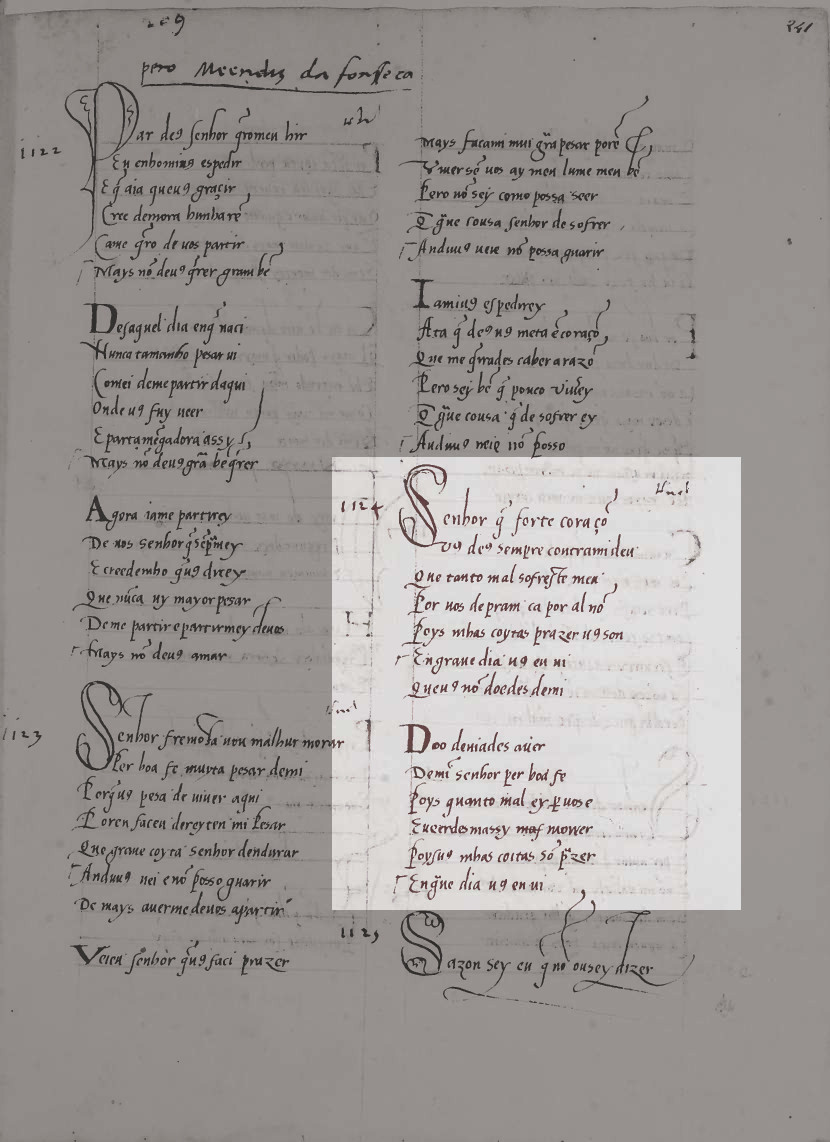 209
241
pero Meendiz da fonsseca
1122
Par deꝯ senhor q̃romeu hir
Eu enhomiuꝯ espedir
E q̃ aia queuꝯ graçir
Cree demora hunha rẽ
Came q̃ro de uos partir
Mays nõ deuꝯ q̃rer gram bẽ
Desaquel dia enq̃ naci
Nunca tamanho pesar ui
Comei deme partir daqui
Onde uꝯ fuy ueer
E partamẽgadora assy
Mays nõ deuꝯ grã bẽ q̃rer
Agora iame partirey
De uos senhor
E creedemho q̃uꝯ direy
Que nũca uy mayor pesar
De me partir e partirmey deuos
Mays nõ deuꝯ amar
1123
Senhor fremosa uou malhur morar
Per boa fe muyta pesar demi
Porq̃uꝯ pesa de uiuer aqui
Poren facen dereyten mi pesar
Que graue coyta senhor dendurar
Anduuꝯ nei e nõ posso guarir
De mays auerme deuos apartir
Veien senhor q̃uꝯ faci prazer
Mays facami mui grã pesar porẽ
Viuer sẽ uos ay meu lume meu bẽ
Pero nõ sey como possa seer
Q̃ grue cousa senhor de sofrer
Anduuꝯ ueie nõ possa guarir
Iamiuꝯ espedirey
Ata q̃ deꝯ uꝯ meta ẽ coraçõ
Que me q̃irades caber a razõ
Pero sey bẽ q̃ pouco viuey
Q̃ grue cousa q̃ de sofrer ey
Anduuꝯ neie nõ posso
1124
Senhor q̃ forte coraçõ
Vꝯ deꝯ sempre contra mi deu
Que tanto mal sofreste meu
Por uos de pram ca por al nõ
Poys mhas coytas prazer uꝯ son
En graue dia uꝯ eu ui
Queuꝯ nõ doedes demi
Doo deuiades auer
Demi senhor per boa fe
Poys quanto mal ey ꝑ uos e
E ueerdesmassy mas morrer
Poysuꝯ mhas coitas sõ p̃zer
En grue dia uꝯ eu ui
1125
Sazon sey eu q̃ nõ ousey dizer